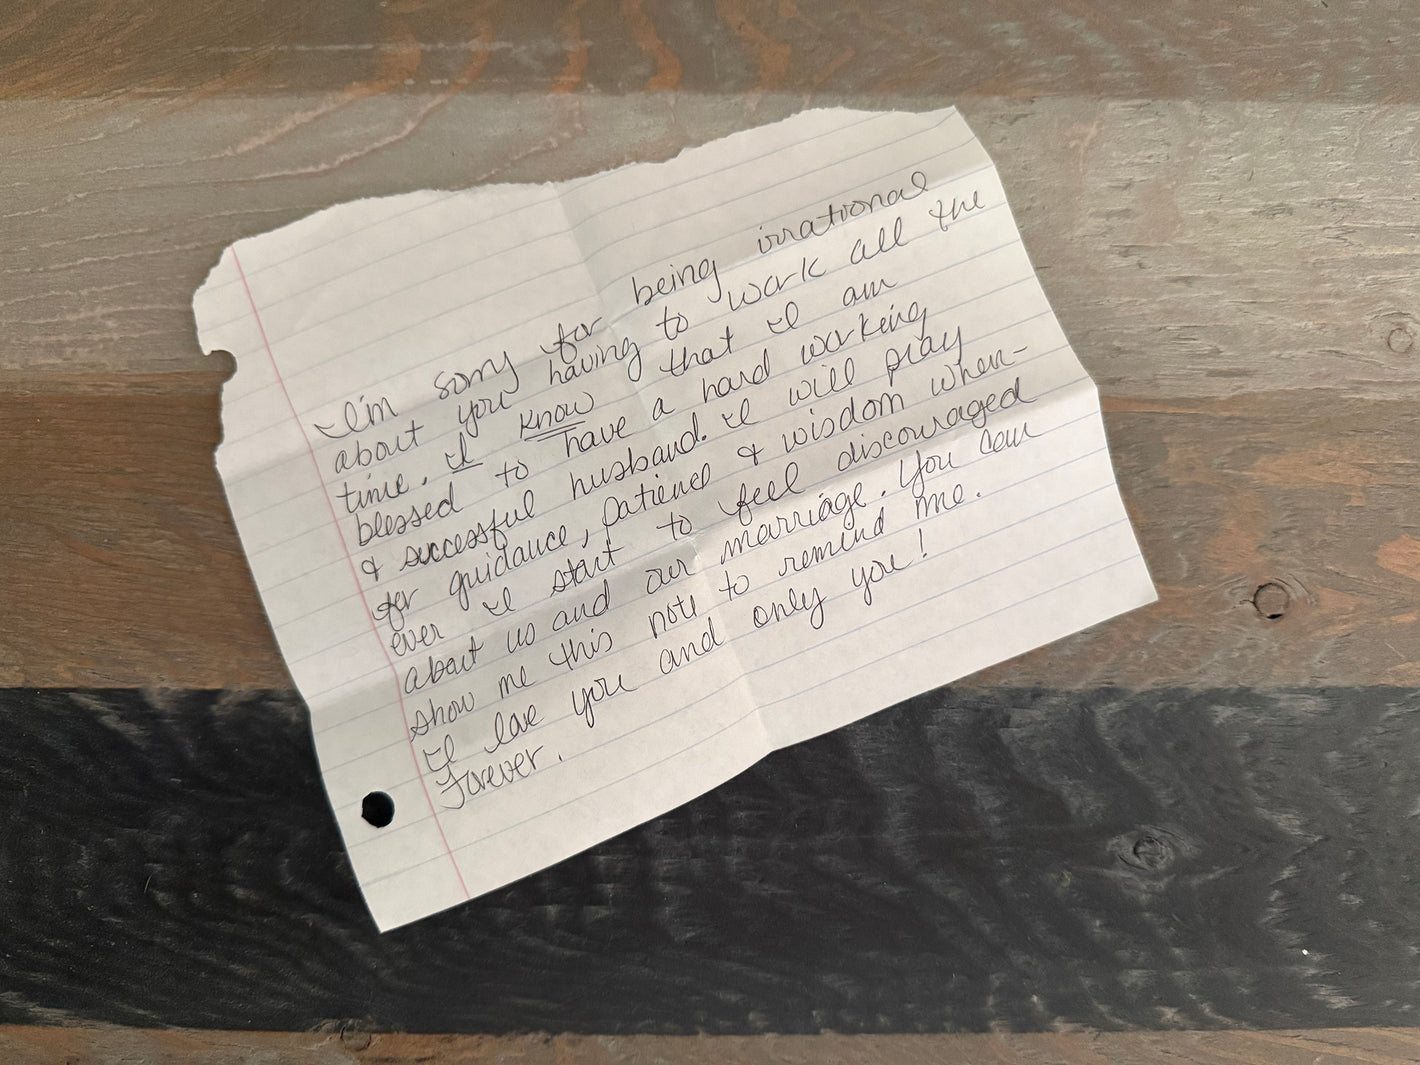 I'm sorry for being irrational
about you having to work all the
time. I know that I am
blessed to have a hard working
& successful husband. I will pray
for guidance, patience & wisdom when-
ever I start to feel discouraged
about us and our marriage. You can
show me this note to remind me.
I love you and only you!
Forever.